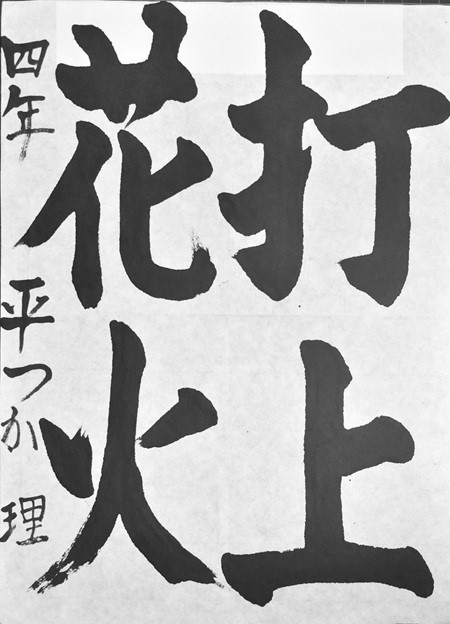 打上
花火
四年 平つか 理